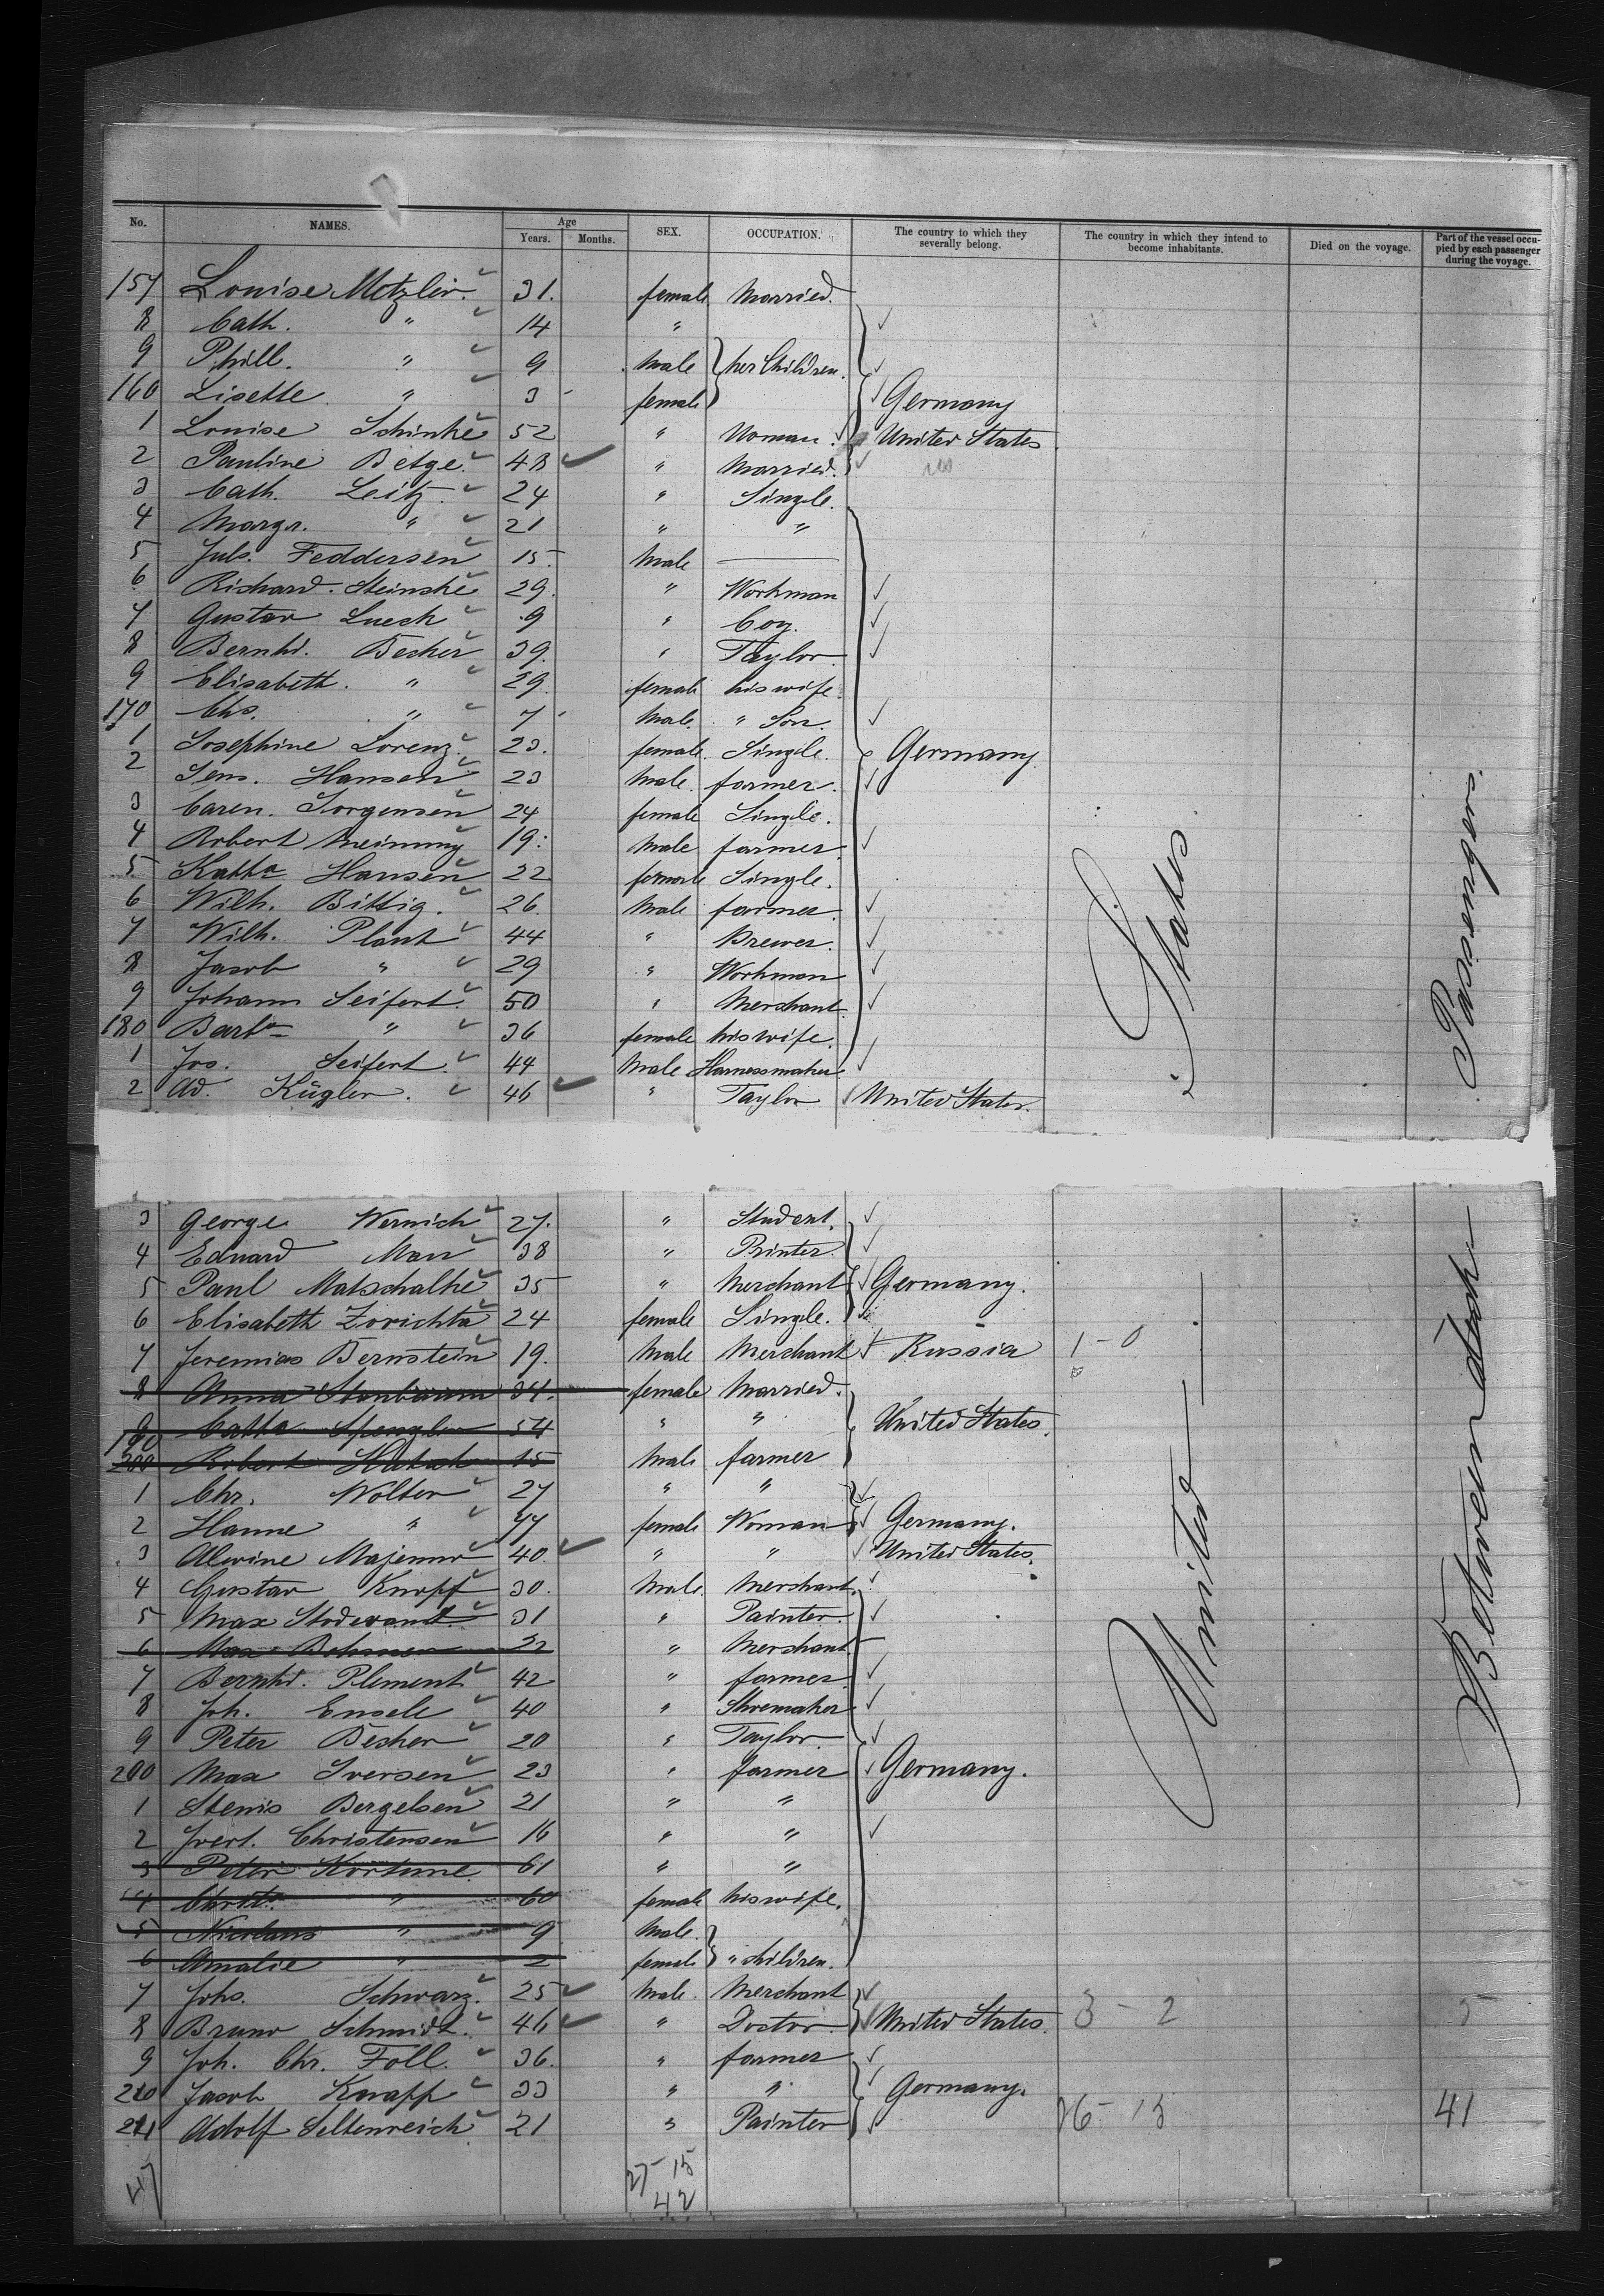 No. NAMES. Age Years. Months. SEX. OCCUPATION. The country to which they severally belong. The country in which they intend to become inhabitants. Died on the voyage. Part of the vessel occupied by each passenger during the voyage.
157 Louise Metzler. 31. female Married.
8 Cath. " 14 "
9 Phill. " 9 Male her Children.
160 Lisette " 3 female Germany
1 Louise Schinke 52 " Woman. United States
2 Pauline Betge. 48 " Married.
3 Cath. Leitz. 24 " Single.
4 Margr. " 21 " "
5 Juls. Feddersen 15. Male
6 Richard. Steinske 29. " Workman
7 Gustav Luech 9 " Coy.
8 Bernhd. Becker 39. " Taylor.
9 Elisabeth. " 29. female his wife.
170 Chs. " 7 Male. " Son.
1 Josephine Lorenz. 23. female. Single. Germany
2 Jens. Hansen 23 Male. farmer.
3 Caren. Jorgensen 24 female Single.
4 Robert Meinung 19. Male farmer.
5 Hansen 22 female Single.
6 Wilh. Bittig. 26. Male farmer.
7 Wilh. Plant 44 " Brewer.
8 Jacob " 29 " Workman
9 Johann Seifert. 50 " Merchant.
180 Barba " 36 female his wife.
1 Jos. Seifert. 44 Male Harnessmaker
2 Ad. Kügler. 46 " Taylor United States.
3 George Wernich 27. " Student.
4 Eduard Man 38 " Printer.
5 Paul Matschalke 35 " Merchant Germany.
6 Elisabeth Zorichta 24 female Single.
7 Jeremias Bernstein 19. Male Merchant Russia 1 - 0
8 Anna Stenbaum 34. female Married.
9 Spengler 54 " " United States.
190 200 Robert 15 Male farmer
1 Chr. Wolter 27 " "
2 Hanne " 77 female Woman Germany.
3 Alwine 40. " " United States.
4 Gustav Knopf 30. Male. Merchant.
5 Max 31 " Painter.
6 Max Behmer 22 " Merchant
7 Bernhd. Plement 42 " farmer.
8 Joh. Ensele 40 " Shoemaker
9 Peter Becker 20 " Taylor.
200 Max Iversen 23 " farmer Germany.
1 Stenis Bergelsen 21 " "
2 Ivert. Christensen 16 " "
3 Peter Kortume. 61 " "
4 Christe. " 60 female his wife.
5 Nicolaus " 9 Male.
6 Amalie " 2 female " children.
7 Johs. Schwarz. 25 Male. Merchant
8 Bruno Schmidt. 46 " Doctor. United States. 3 - 2 5
9 Joh. Chr. Foll. 36. " farmer
210 Jacob Knapp 33 " " Germany.
211 Adolf Seltenreich 21 " Painter 26 - 15 41
47 27 - 15
42
United States
Between decks Passengers.